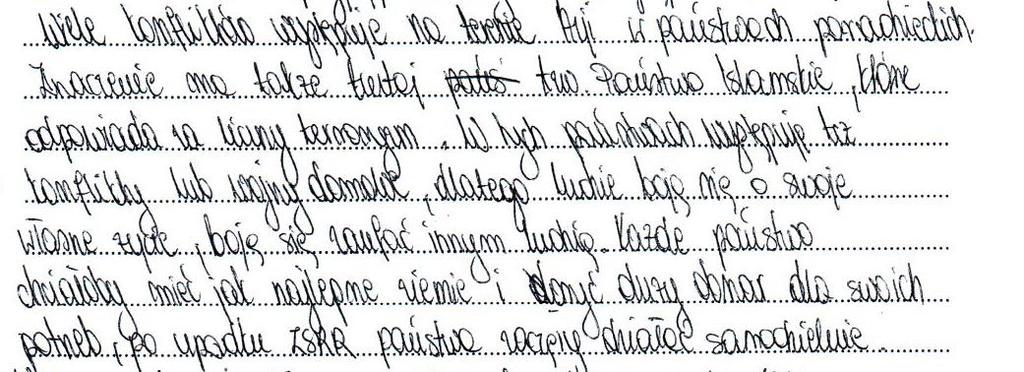 Wiele konfliktów występuje na terenie Azji i w państwach poradzieckich.
Znaczenie ma także tutaj tzw. Państwo Islamskie, które
odpowiada za liczny terroryzm. W tych państwach występuję też
konflikty lub wojny domowe, dlatego ludzie boję się o swoje
własne życie, boję się zaufać innym ludzią. Każde państwo
chciałoby mieć jak najlepsze ziemie i duży obszar dla swoich
potrzeb, po upadku ZSRR państwa zaczęły działać samodzielnie.